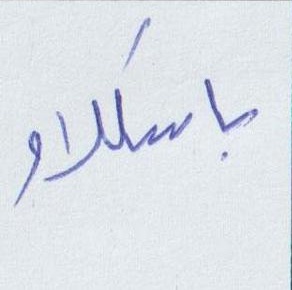 باسکلاو